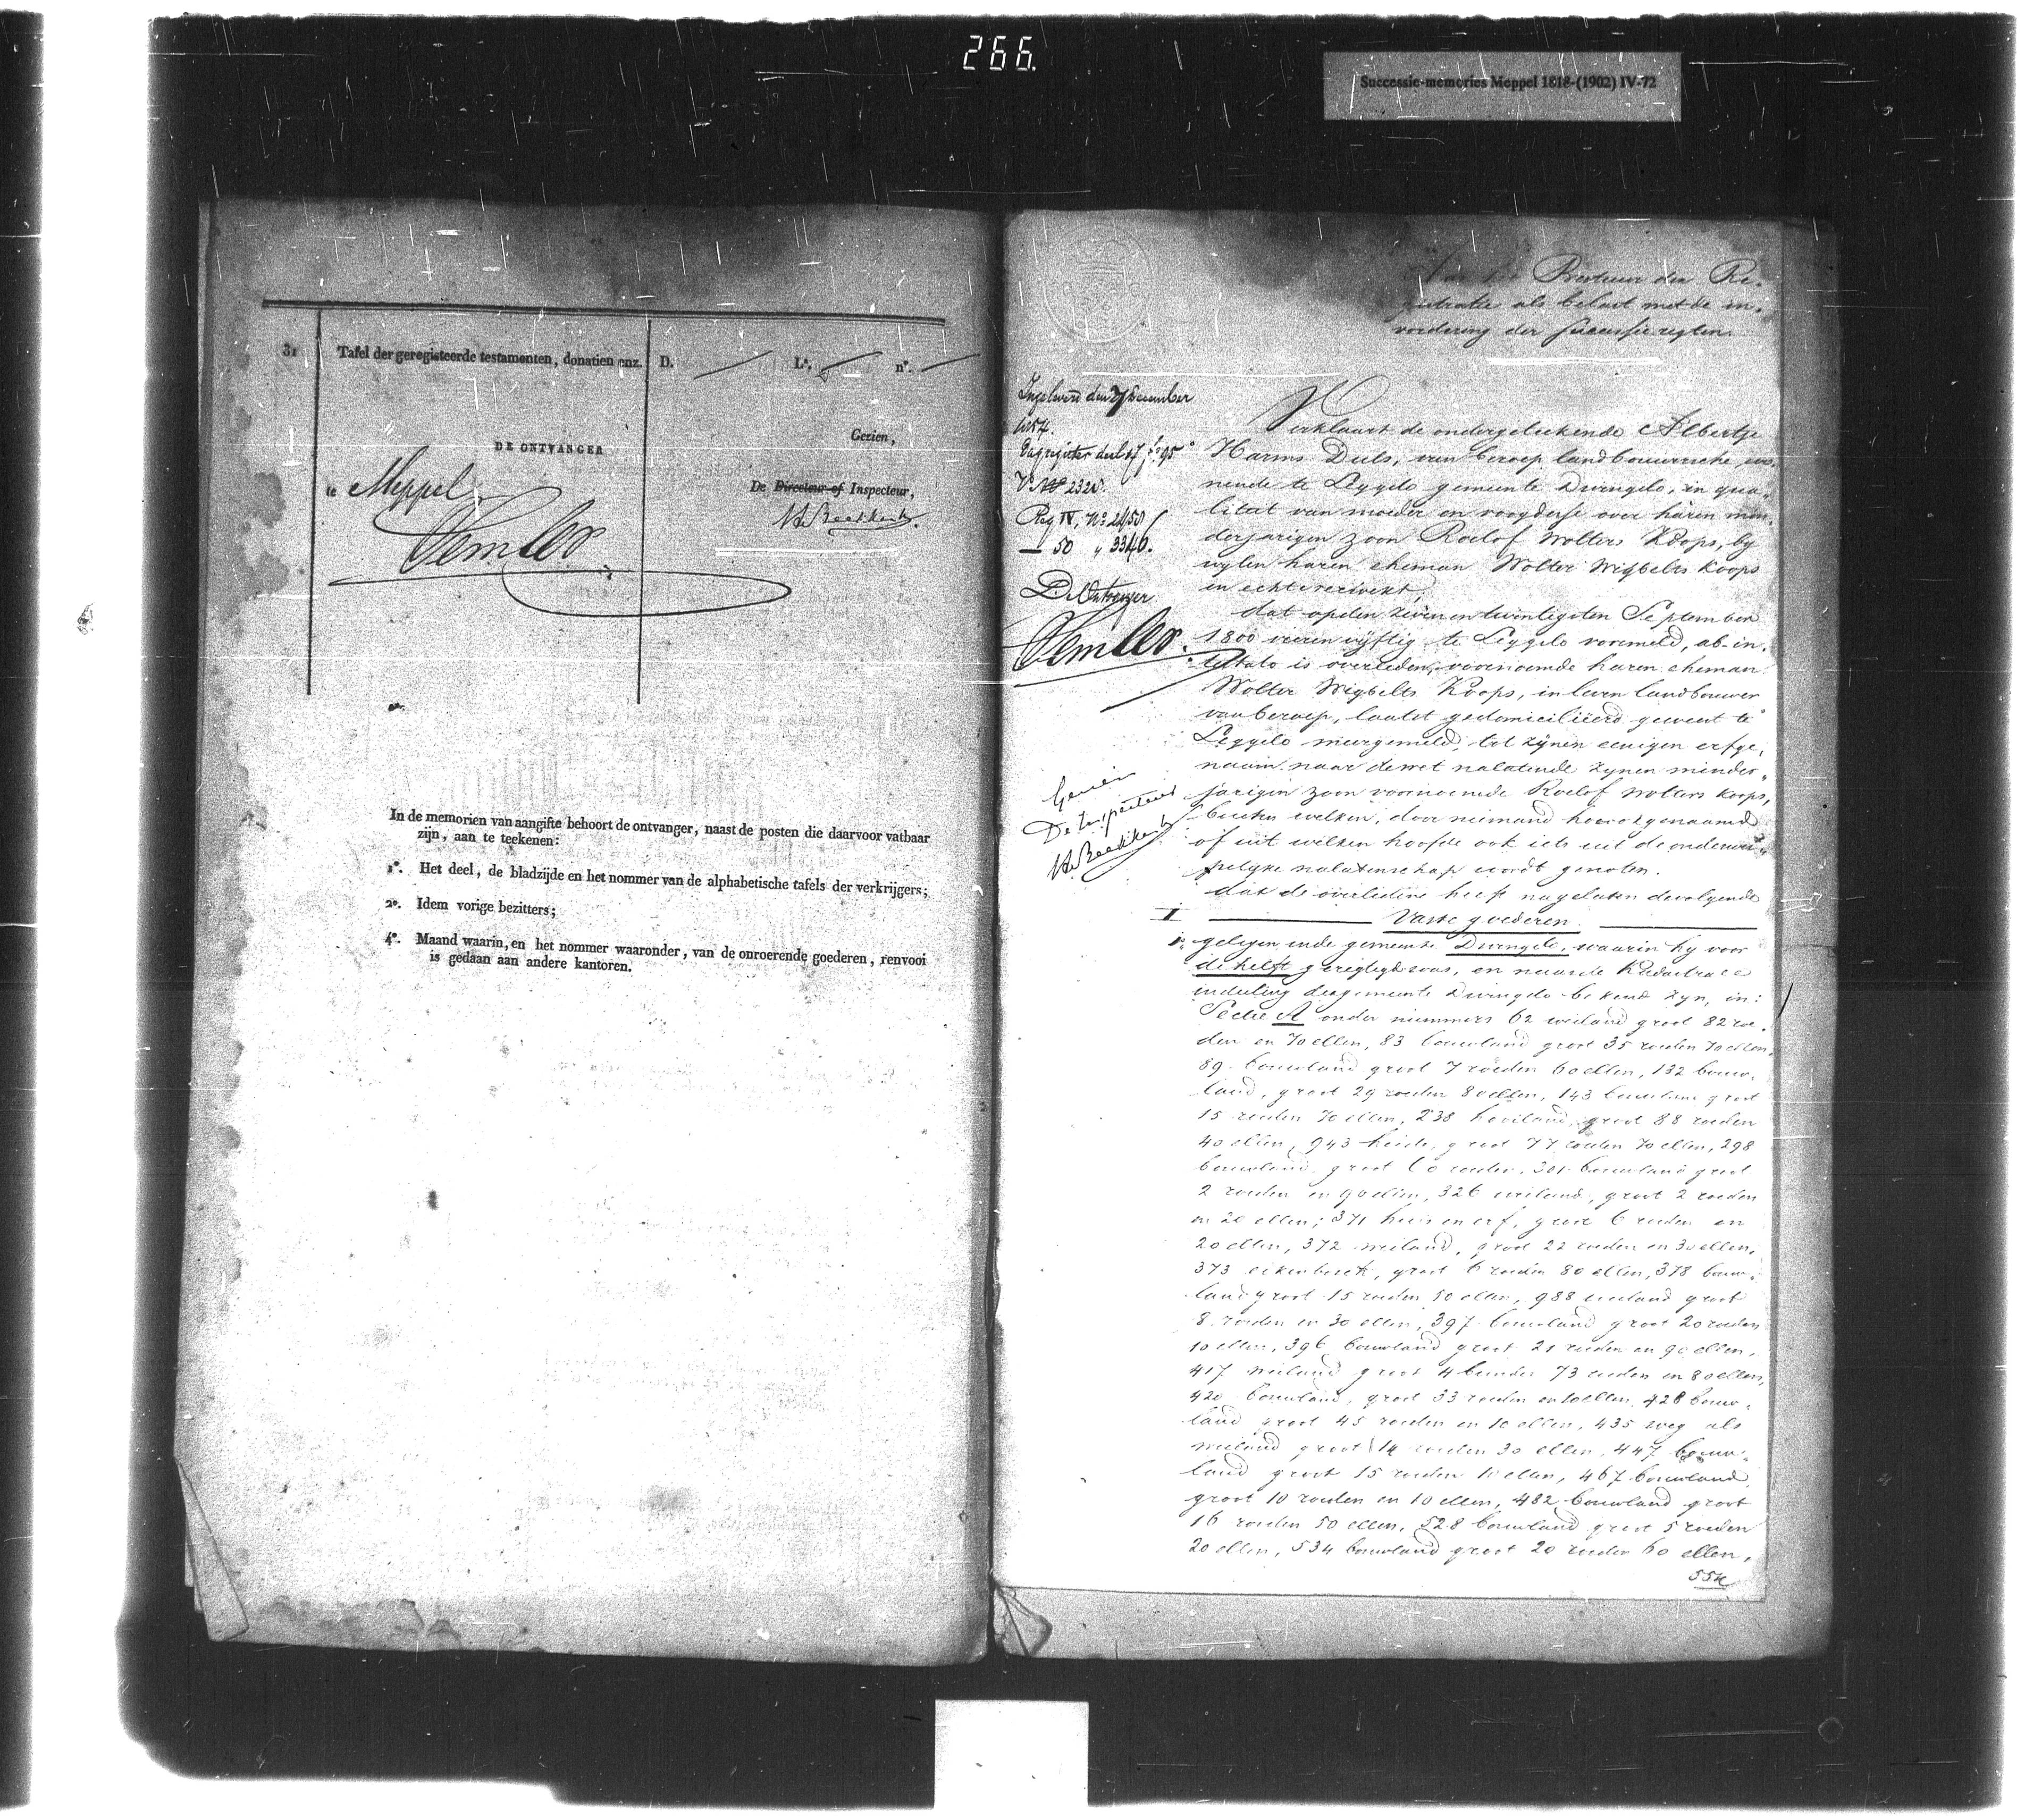 266.
Successie-memories Meppel 1818-(1902) IV-72
31 Tafel der geregisteerde testamenten, donatien enz. D. L.ª nº.
DE ONTVANGER
te Meppel
Gezien,
De Directeur of Inspecteur,
In de memorien van aangifte behoort de ontvanger, naast de posten die daarvoor vatbaar
zijn, aan te teekenen:
1º. Het deel, de bladzijde en het nommer van de alphabetische tafels der verkrijgers;
2º. Idem vorige bezitters;
4º. Maand waarin, en het nommer waaronder, van de onroerende goederen, renvooi
is gedaan aan andere kantoren.
Aan het Bestuur der Re-
gistratie als belast met de in-
vordering der successie regten.
Ingeleverd den 7 December
1854.
Dagregister deel 17 fº 95
Vº Nº 2320.
Reg IV, Nº 2450
— 50 „ 3346.
De Ontvanger
Gezien
De Inspecteur
Verklaart de ondergeteekende Albertje
Harms Duls, van beroep landbouwersche, wo-
nende te Leggelo gemeente Dwingelo, in qua-
litat van moeder en voogdesse over haren min-
derjarigen zoon Roelof Wolters Koops, by
wylen haren eheman Wolter Wigbelts Koops
in echt verwekt,
dat op den zevenentwintigsten September
1800 vierenvijftig te Leggelo voormeld, ab-in-
testato is overleden, voornoemde haren eheman
Wolter Wigbelts Koops, in leven landbouwer
van beroep, laatst gedomicilieerd geweest te
Leggelo meergemeld, tot zijnen eenigen erfge-
naam naar de wet nalatende zynen minder-
jarigen zoon voornoemde Roelof Wolters Koops,
buiten welken, door niemand hoe ook genaamd
of uit welken hoofde ook iets uit de onderwer-
pelyke nalatenschap wordt genoten.
dat de overledene heeft nagelaten de volgende
I Vaste goederen
1º. gelegen in de gemeente Dwingelo, waarin hy voor
de helft geregtigd was, en naar de Kadastrale
indeeling der gemeente Dwingelo bekend zyn, in:
Sectie A onder nummers 62 weiland groot 82 roe-
den en 70 ellen, 83 bouwland groot 35 roeden 70 ellen,
89 bouwland groot 7 roeden 60 ellen, 132 bouw-
land, groot 29 roeden 80 ellen, 143 bouwland groot
15 roeden 70 ellen, 238 hooiland, groot 88 roeden
40 ellen, 943 heide, groot 77 roeden 70 ellen, 298
bouwland, groot 60 roeden, 301 bouwland groot
2 roeden en 90 ellen, 326 weiland, groot 2 roeden
en 20 ellen; 371 huis en erf, groot 6 roeden en
20 ellen, 372 weiland, groot 22 roeden en 30 ellen,
373 eikenbosch, groot 6 roeden 80 ellen, 378 bouw-
land groot 15 roeden 50 ellen, 988 weiland groot
8 roeden en 30 ellen, 397 bouwland groot 20 roeden
10 ellen, 396 bouwland groot 21 roeden en 90 ellen,
417 weiland groot 4 bunder 73 roeden en 80 ellen,
420 bouwland, groot 33 roeden en 10 ellen, 428 bouw-
land groot 45 roeden en 10 ellen, 435 weg als
weiland groot 14 roeden 30 ellen, 447 bouw-
land groot 15 roeden 10 ellen, 467 bouwland
groot 10 roeden en 10 ellen, 482 bouwland groot
16 roeden 50 ellen, 528 bouwland groot 5 roeden
20 ellen, 534 bouwland groot 20 roeden 60 ellen,
554